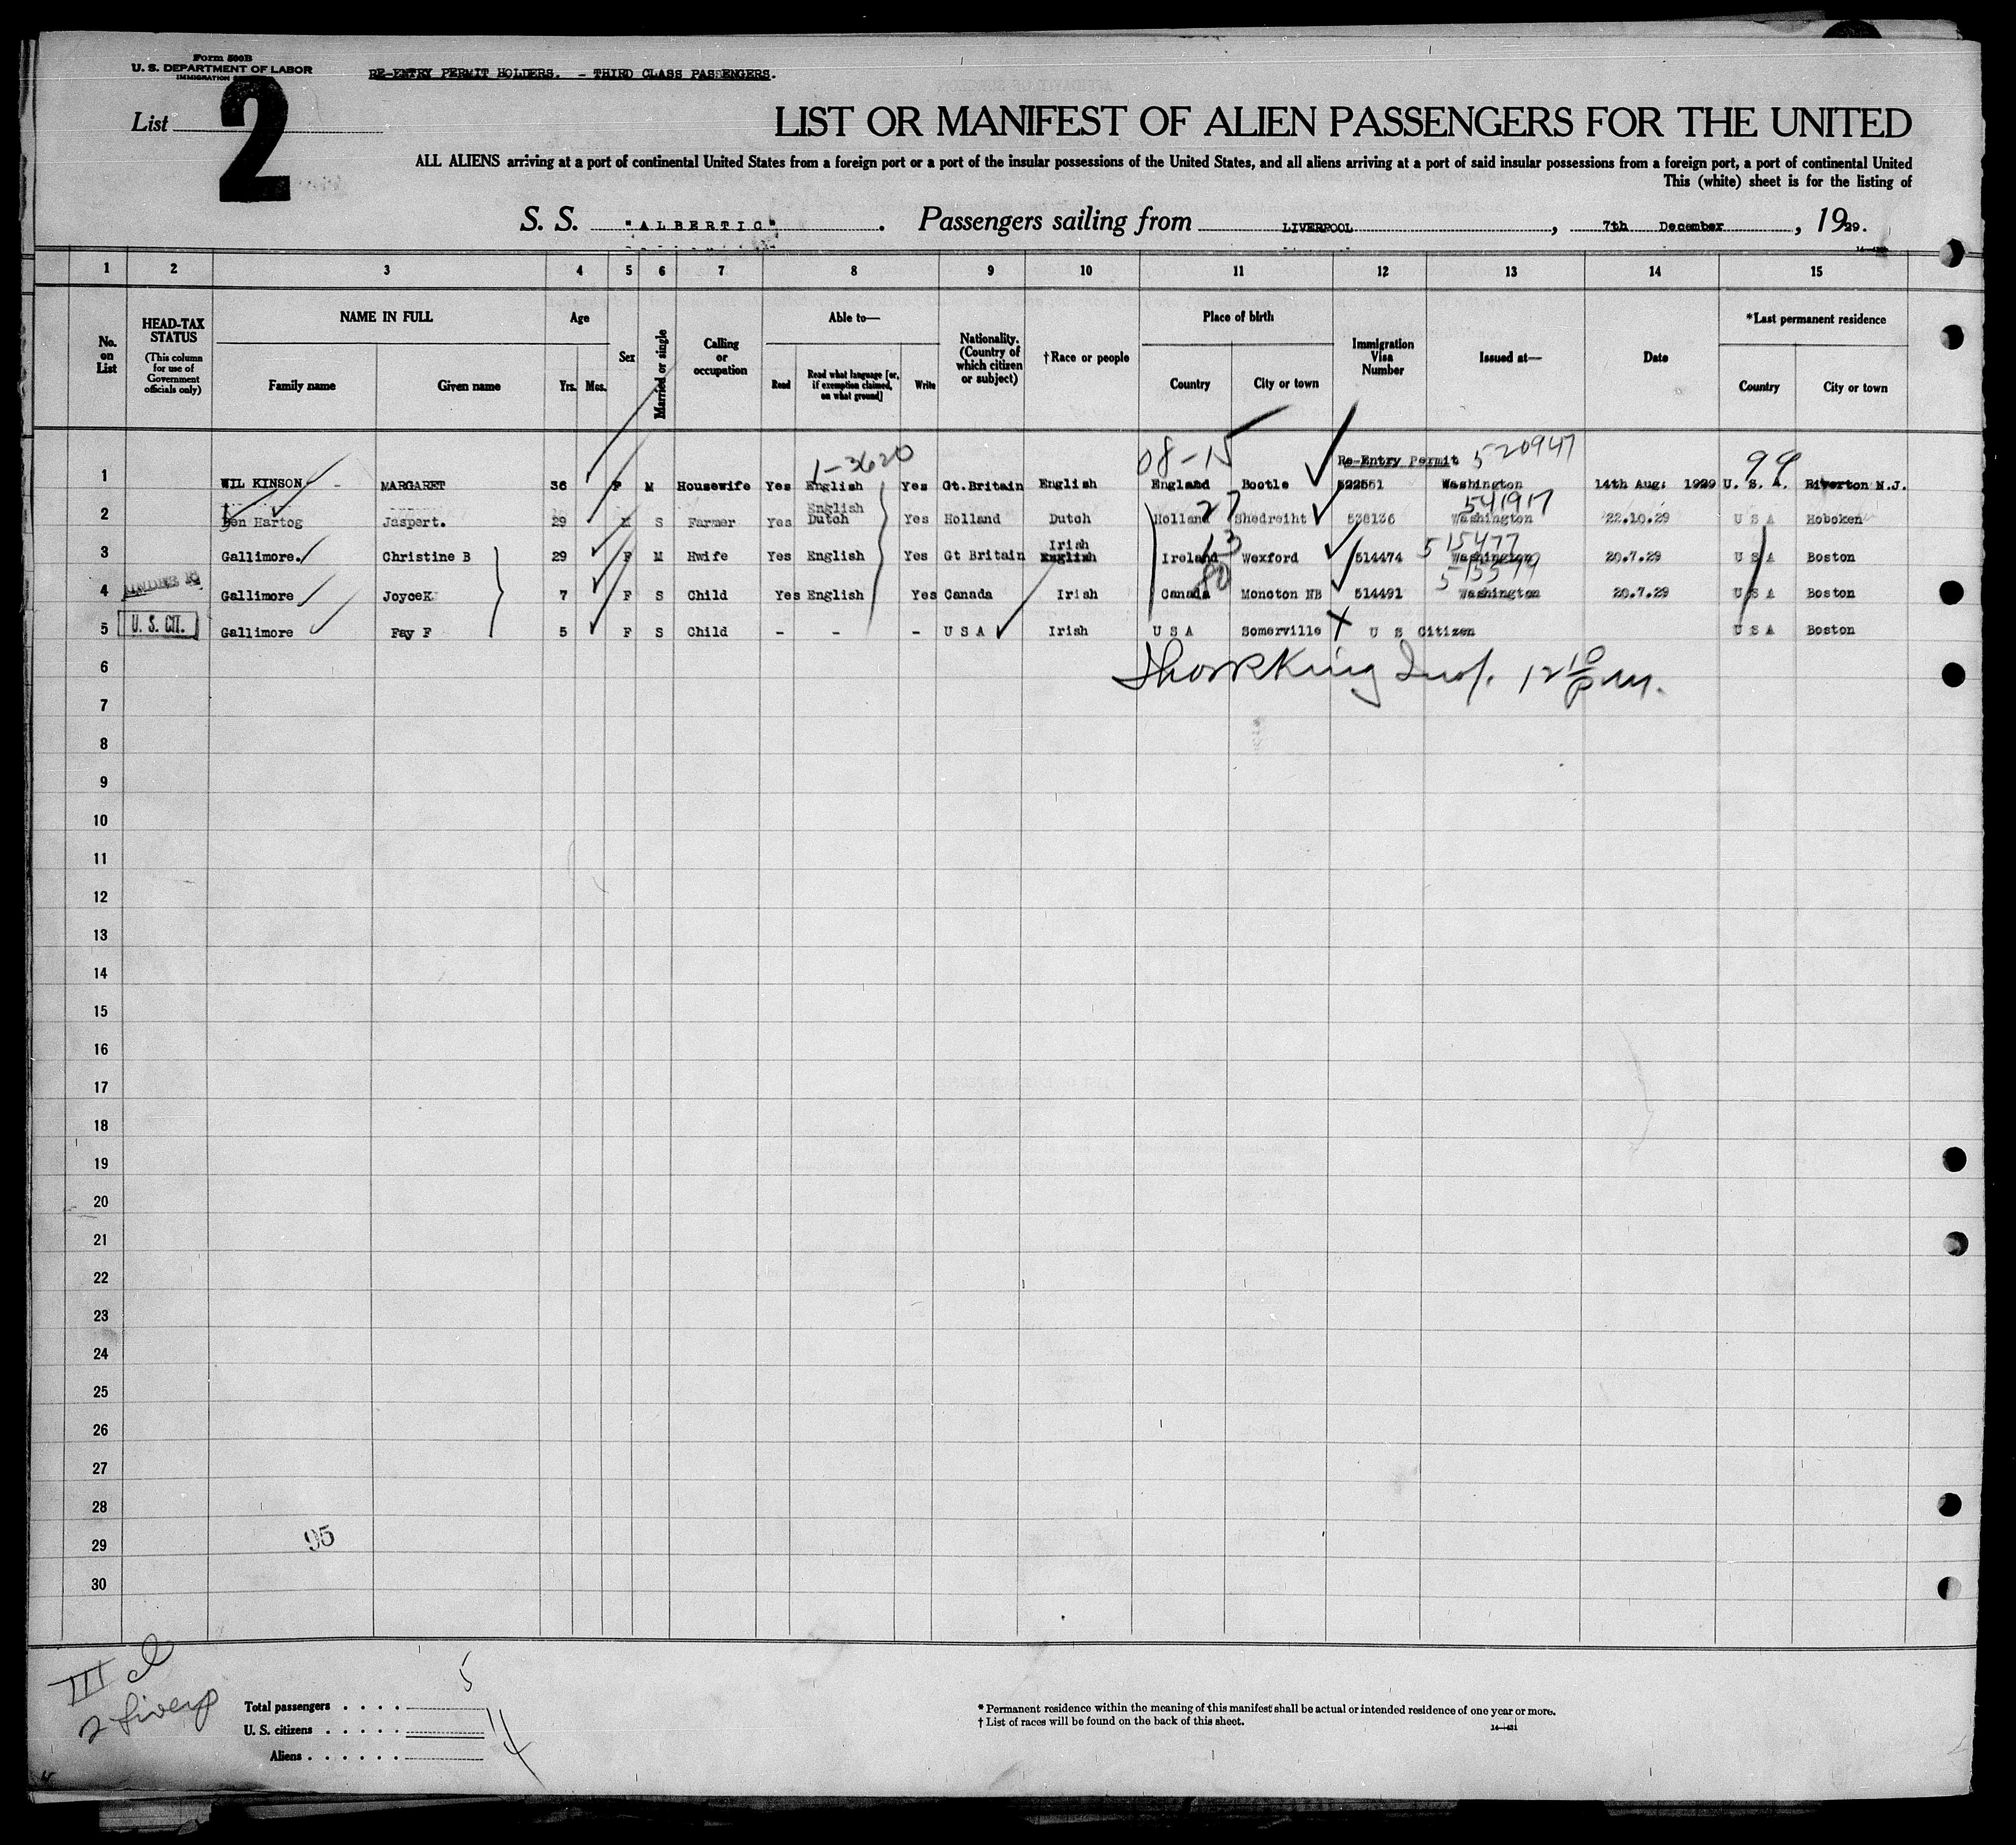 Form 500B
U. S. DEPARTMENT OF LABOR
IMMIGRATION
RE-ENTRY PERMIT HOLDERS. - THIRD CLASS PASSENGERS.
List 2
LIST OR MANIFEST OF ALIEN PASSENGERS FOR THE UNITED
ALL ALIENS arriving at a port of continental United States from a foreign port or a port of the insular possessions of the United States, and all aliens arriving at a port of said insular possessions from a foreign port, a port of continental United
This (white) sheet is for the listing of
S. S. "ALBERTIC". Passengers sailing from LIVERPOOL, 7th December, 1929.
1 2 3 4 5 6 7 8 9 10 11 12 13 14 15
No. on List
HEAD-TAX STATUS (This column for use of Government officials only)
NAME IN FULL Family name Given name
Age Yrs. Mos.
Sex
Married or single
Calling or occupation
Able to— Read Read what language [or, if exemption claimed, on what ground] Write
Nationality. (Country of which citizen or subject)
†Race or people
Place of birth Country City or town
Immigration Visa Number
Issued at—
Date
*Last permanent residence Country City or town
1-3620 08-15 Re-Entry Permit 520947 99
1 WIL KINSON - MARGARET 36 F M Housewife Yes English Yes Gt.Britain English England Bootle 522551 Washington 14th Aug: 1929 U. S. A. Riverton N.J.
English 27 541917
2 Den Hartog Jaspert. 29 M S Farmer Yes Dutch Yes Holland Dutch Holland Shedreiht 538136 Washington 22.10.29 U S A Hoboken
Irish 13 515477
3 Gallimore. Christine B 29 F M Hwife Yes English Yes Gt Britain English Ireland Wexford 514474 Washington 20.7.29 U S A Boston
UNDER 16 80
4 Gallimore JoyceK 7 F S Child Yes English Yes Canada Irish Canada Moncton NB 514491 Washington 20.7.29 U S A Boston
U. S. CIT.
5 Gallimore Fay F 5 F S Child - - - U S A Irish U S A Somerville X U S Citizen U S A Boston
6
King Insp. 12 10 P M.
7
8
9
10
11
12
13
14
15
16
17
18
19
20
21
22
23
24
25
26
27
28
29
95
30
III cl
2 Liverp
Total passengers . . . . 5
U. S. citizens . . . . . 1
Aliens . . . . . . 4
* Permanent residence within the meaning of this manifest shall be actual or intended residence of one year or more.
† List of races will be found on the back of this sheet.